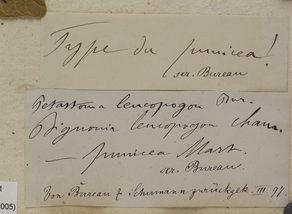 Type du punicea!
scr. Bureau
Petastoma leucopogon Bur.
Bignonia leucopogon Cham.
— punicea Mart.
scr. Bureau
Von Bureau & Schumann zurückgek. III. 97.
005)